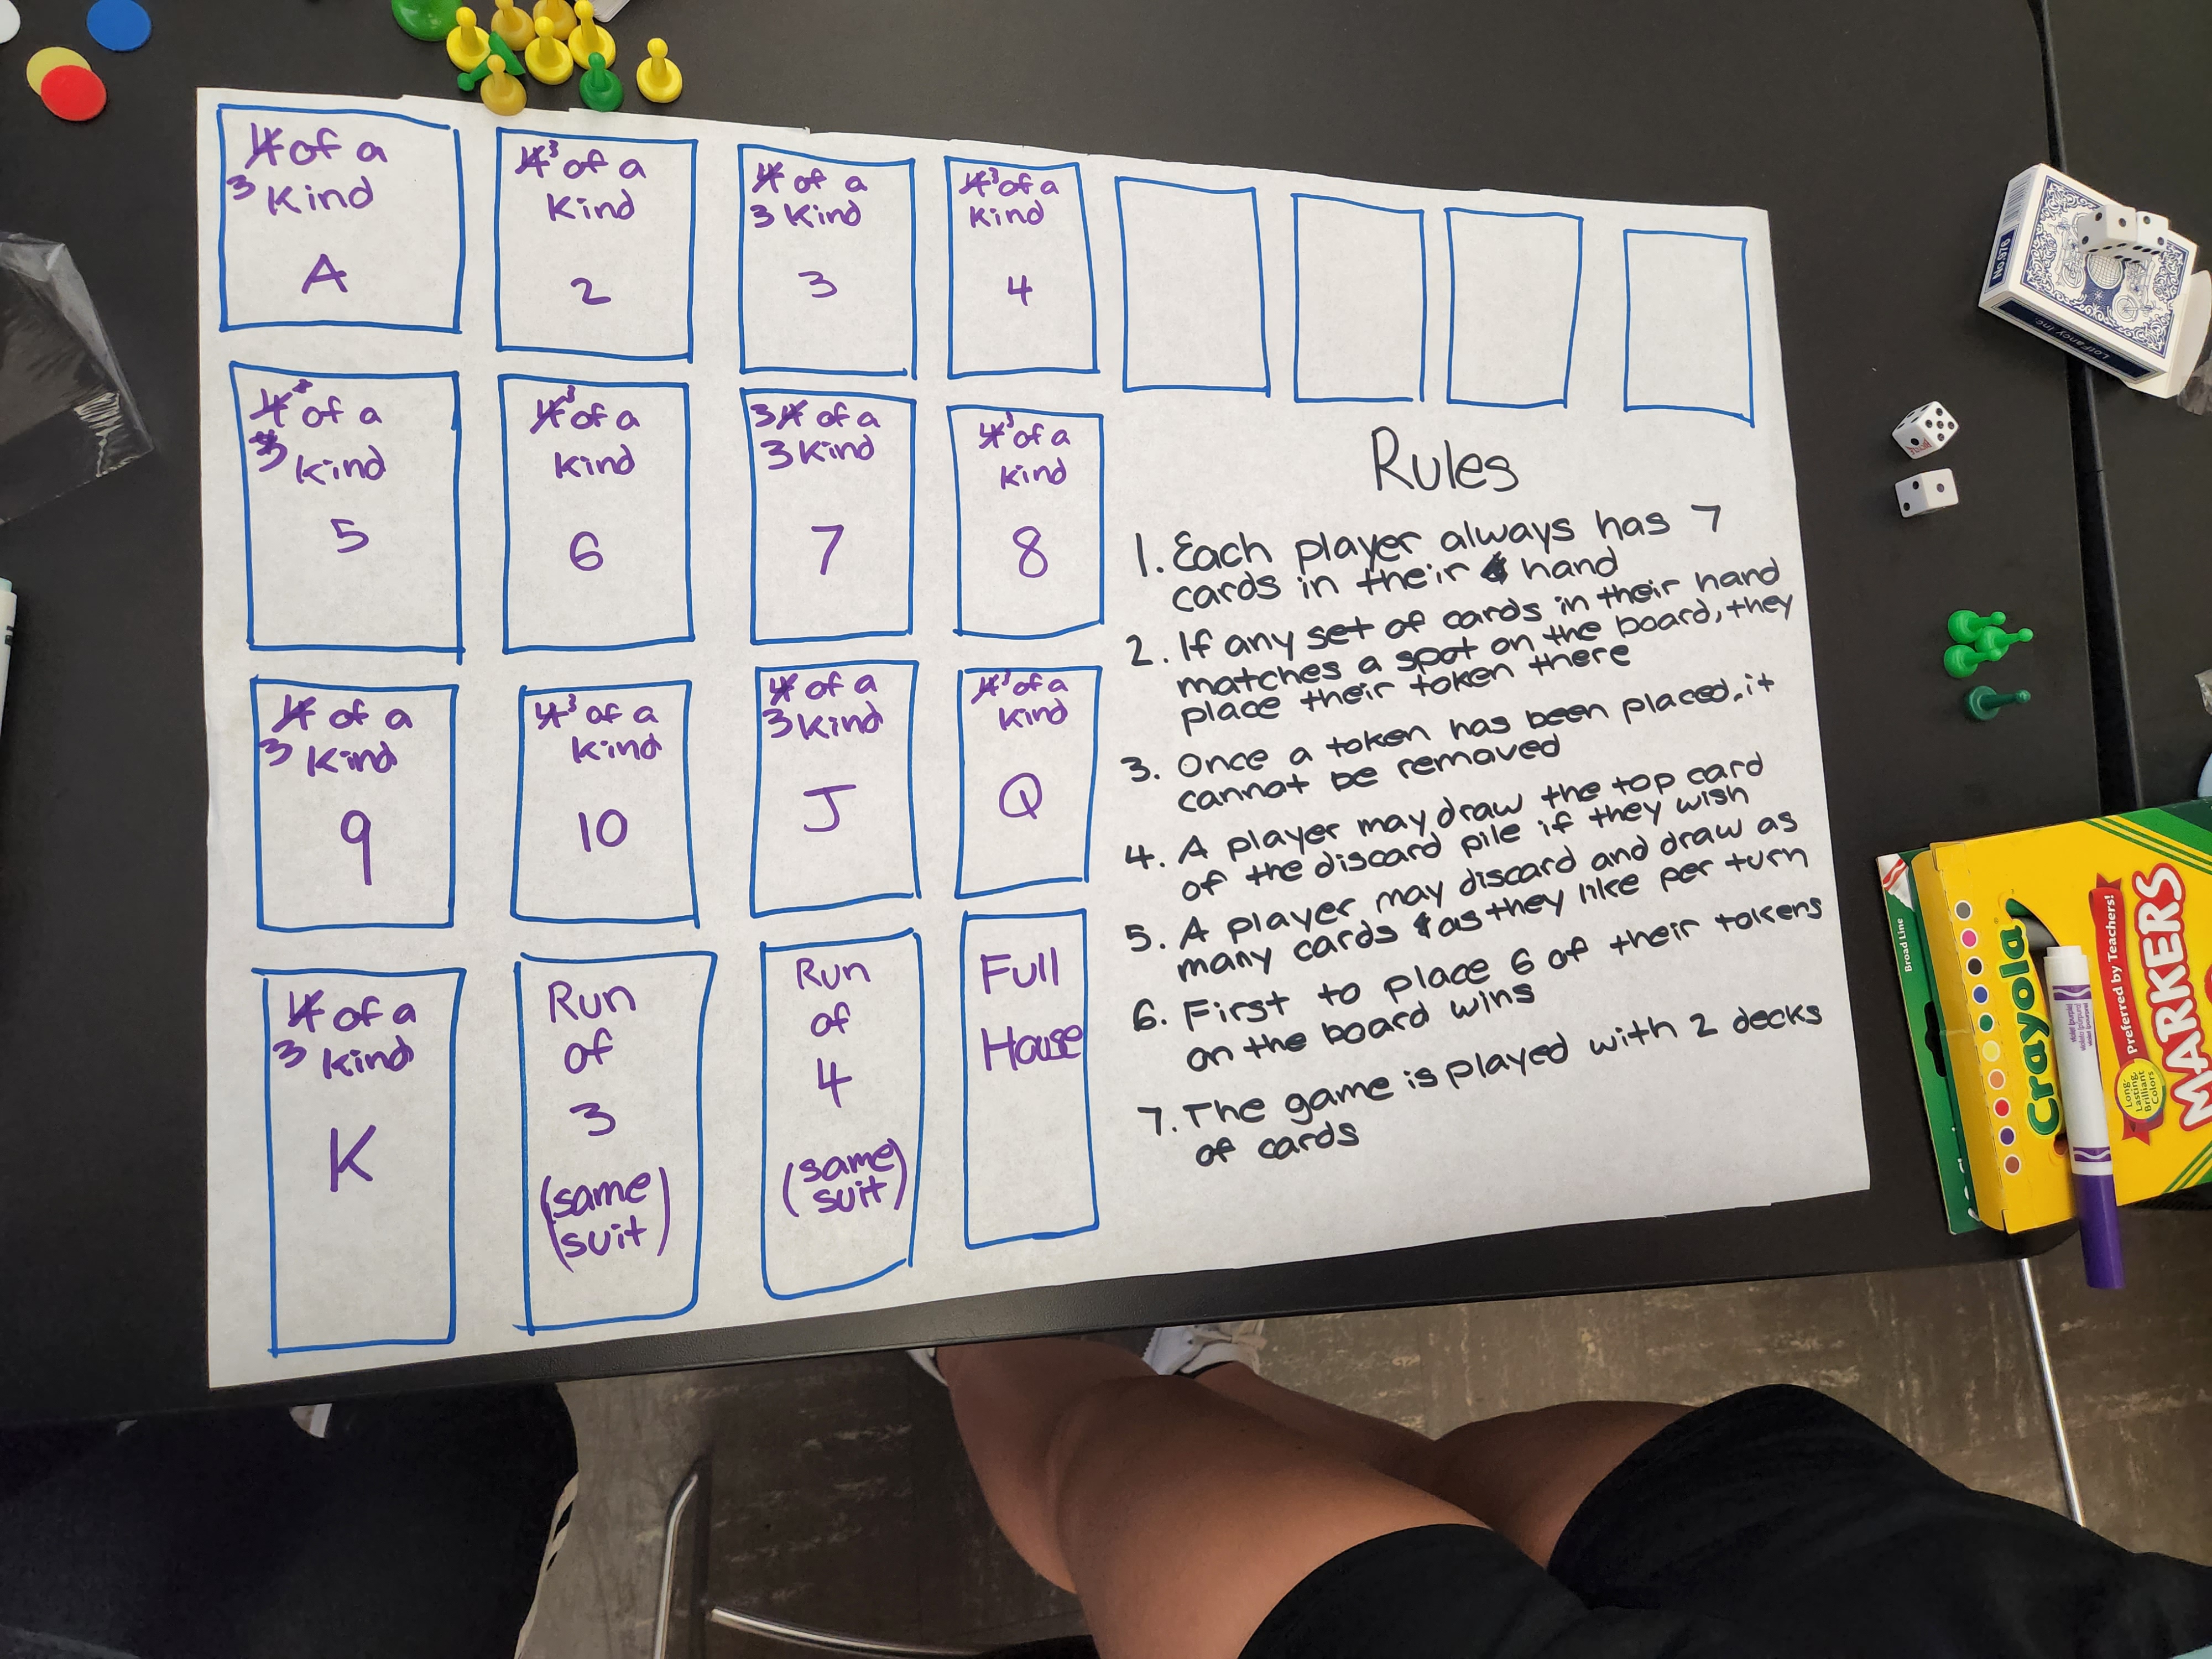 4 of a
3 Kind
A
4 3 of a
Kind
2
4 of a
3 Kind
3
4 3 of a
Kind
4
4 3 of a
3 kind
5
4 3 of a
kind
6
3 4 of a
3 Kind
7
4 3 of a
kind
8
4 of a
3 kind
9
4 3 of a
kind
10
4 of a
3 kind
J
4 3 of a
kind
Q
4 of a
3 kind
K
Run
of
3
(same
suit)
Run
of
4
(same
suit)
Full
House
Rules
1. Each player always has 7
cards in their hand
2. If any set of cards in their hand
matches a spot on the board, they
place their token there
3. Once a token has been placed, it
cannot be removed
4. A player may draw the top card
of the discard pile if they wish
5. A player may discard and draw as
many cards as they like per turn
6. First to place 6 of their tokens
on the board wins
7. The game is played with 2 decks
of cards
No.976
LotFancy Inc.
Broad Line
Crayola
Preferred by Teachers!
MARKERS
Long-
Lasting,
Brilliant
Colors